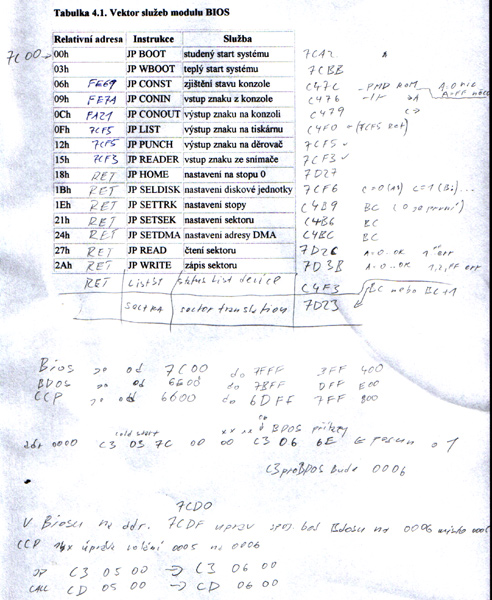 Tabulka 4.1. Vektor služeb modulu BIOS
Relativní adresa Instrukce Služba
7C00 00h JP BOOT studený start systému 7CA2
03h JP WBOOT teplý start systému 7CBB
06h FE69 JP CONST zjištění stavu konzole C47C - PMD ROM
09h FE7A JP CONIN vstup znaku z konzole C476
0Ch FA21 JP CONOUT výstup znaku na konzoli C479
0Fh 7CF5 JP LIST výstup znaku na tiskárnu C4F0 - (7CF5 RET)
12h 7CF5 JP PUNCH výstup znaku na děrovač 7CF5
15h 7CF3 JP READER vstup znaku ze snímače 7CF3
18h RET JP HOME nastavení na stopu 0 7D27
1Bh RET JP SELDISK nastavení diskové jednotky 7CF6 C=0 (A:) C=1 (B:)...
1Eh RET JP SETTRK nastavení stopy C4B9 BC
21h RET JP SETSEK nastavení sektoru C4B6 BC
24h RET JP SETDMA nastavení adresy DMA C4BC BC
27h RET JP READ čtení sektoru 7D2C A=0..OK
2Ah RET JP WRITE zápis sektoru 7D3B A=0..OK
RET LISTST status list device C4F3 BC nebo BC+1
SECTRA sector translation 7D23
Bios je od 7C00 do 7FFF 3FF 400
BDOS je od 6E00 do 7BFF DFF E00
CCP je od 6600 do 6DFF 7FF 800
cold start BDOS příkazy
adr 0000 C3 03 7C 00 00 C3 06 6E
C3 pro BDOS bude 0006
7CD0
V Biosu na adr. 7CDF uprav na 0006 místo
CCP úprava volání 0005 na 0006
JP C3 05 00 → C3 06 00
CALL CD 05 00 → CD 06 00